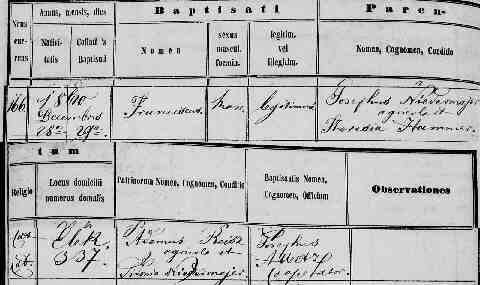 Annus, mensis, dies
Baptisati
Paren-
Nrus
cur-
rens
Nativi-
tatis
Collati
Baptismi
Nomen
sexus
mascul.
foemin.
legitim.
vel
illegitim.
Nomen, Cognomen, Conditio
166.
Decembris
28a 29a
Franciscus
mas.
legitimus
Josephus Niedermajer
agricola et
Theresia Hammer
tum
Religio
Locus domicilii
numerus domalis
Patrinorum Nomen, Cognomen, Conditio
Baptisantis Nomen,
Cognomen, Officium
Observationes
Elek
337.
Reisz
agricola et
Niedermajer
Josephus
Cooperator.